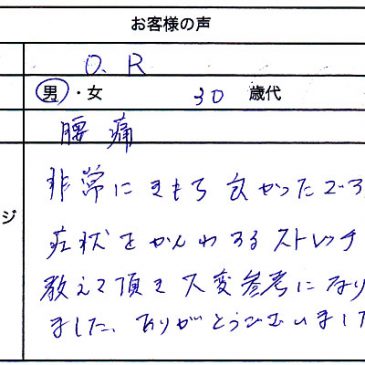 お客様の声
O.R
男・女 30 歳代
腰痛
非常にきもち良かったです
ジ
症状をかんわするストレッチ
教えて頂き大変参考になり
ました、ありがとうございました